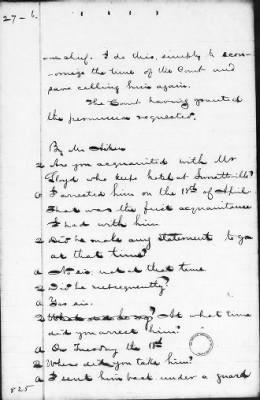 27-6.
-in chief. I do this, simply to econ-
omize the time of the Court and
save calling him again.
The Court having granted
the permission requested.
By Mr Aiken
Q Are you acquainted with Mr
Lloyd who keeps hotel at Surrattsville?
A I arrested him on the 18th of April.
That was the first acquaintance
I had with him
Q Did he make any statement to you
at that time?
A No sir not at that time
Q Did he subsequently?
A Yes sir.
Q What did he say? At what time
did you arrest him?
A On Tuesday the 18th
Q Where did you take him?
A I sent him back under a guard
825